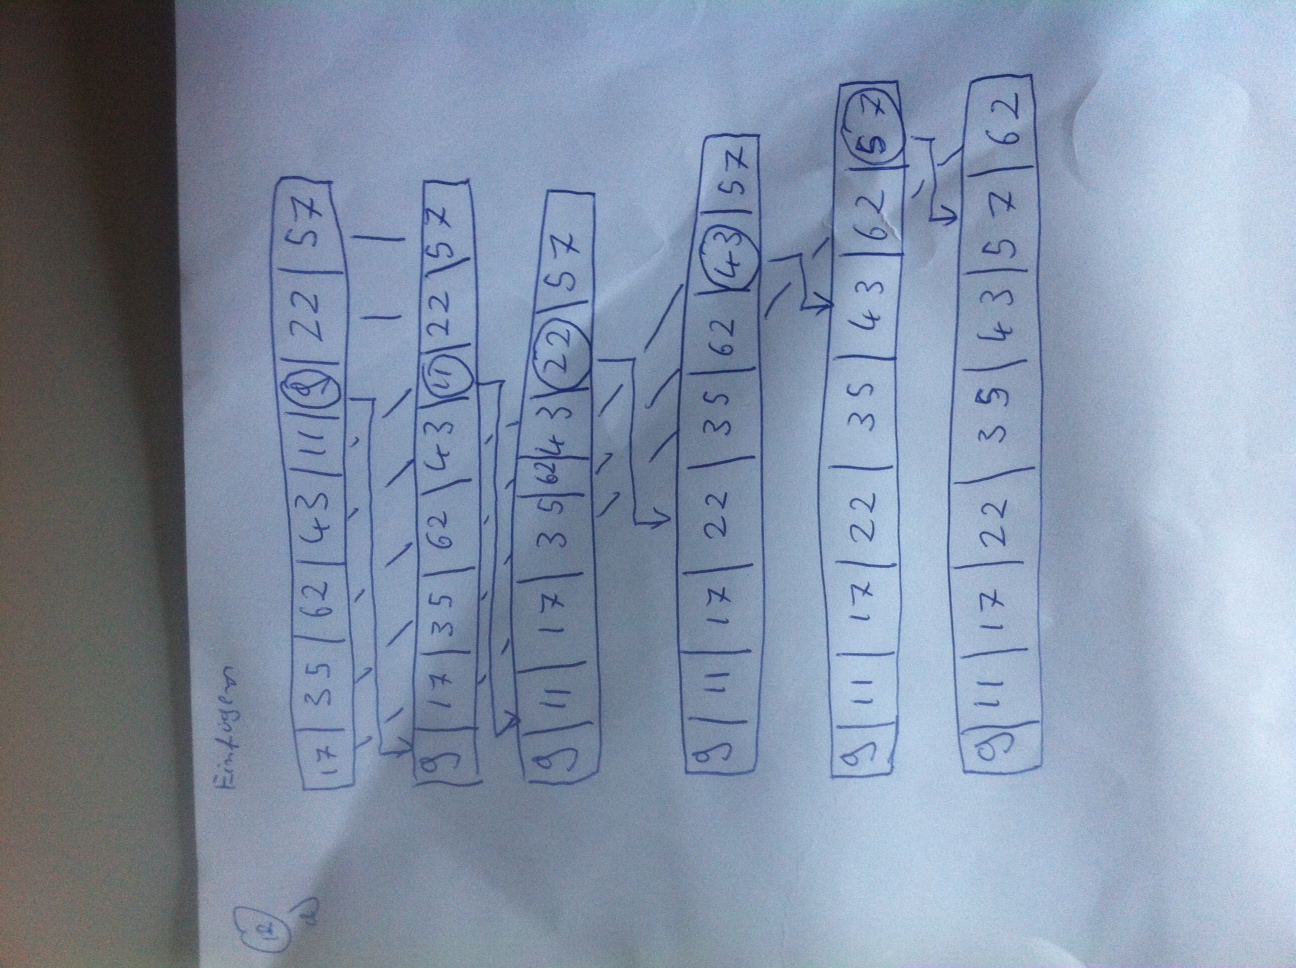 Einfügen
12
a)
17 | 35 | 62 | 43 | 11 | 9 | 22 | 57
9 | 17 | 35 | 62 | 43 | 11 | 22 | 57
9 | 11 | 17 | 35 | 62 | 43 | 22 | 57
9 | 11 | 17 | 22 | 35 | 62 | 43 | 57
9 | 11 | 17 | 22 | 35 | 43 | 62 | 57
9 | 11 | 17 | 22 | 35 | 43 | 57 | 62